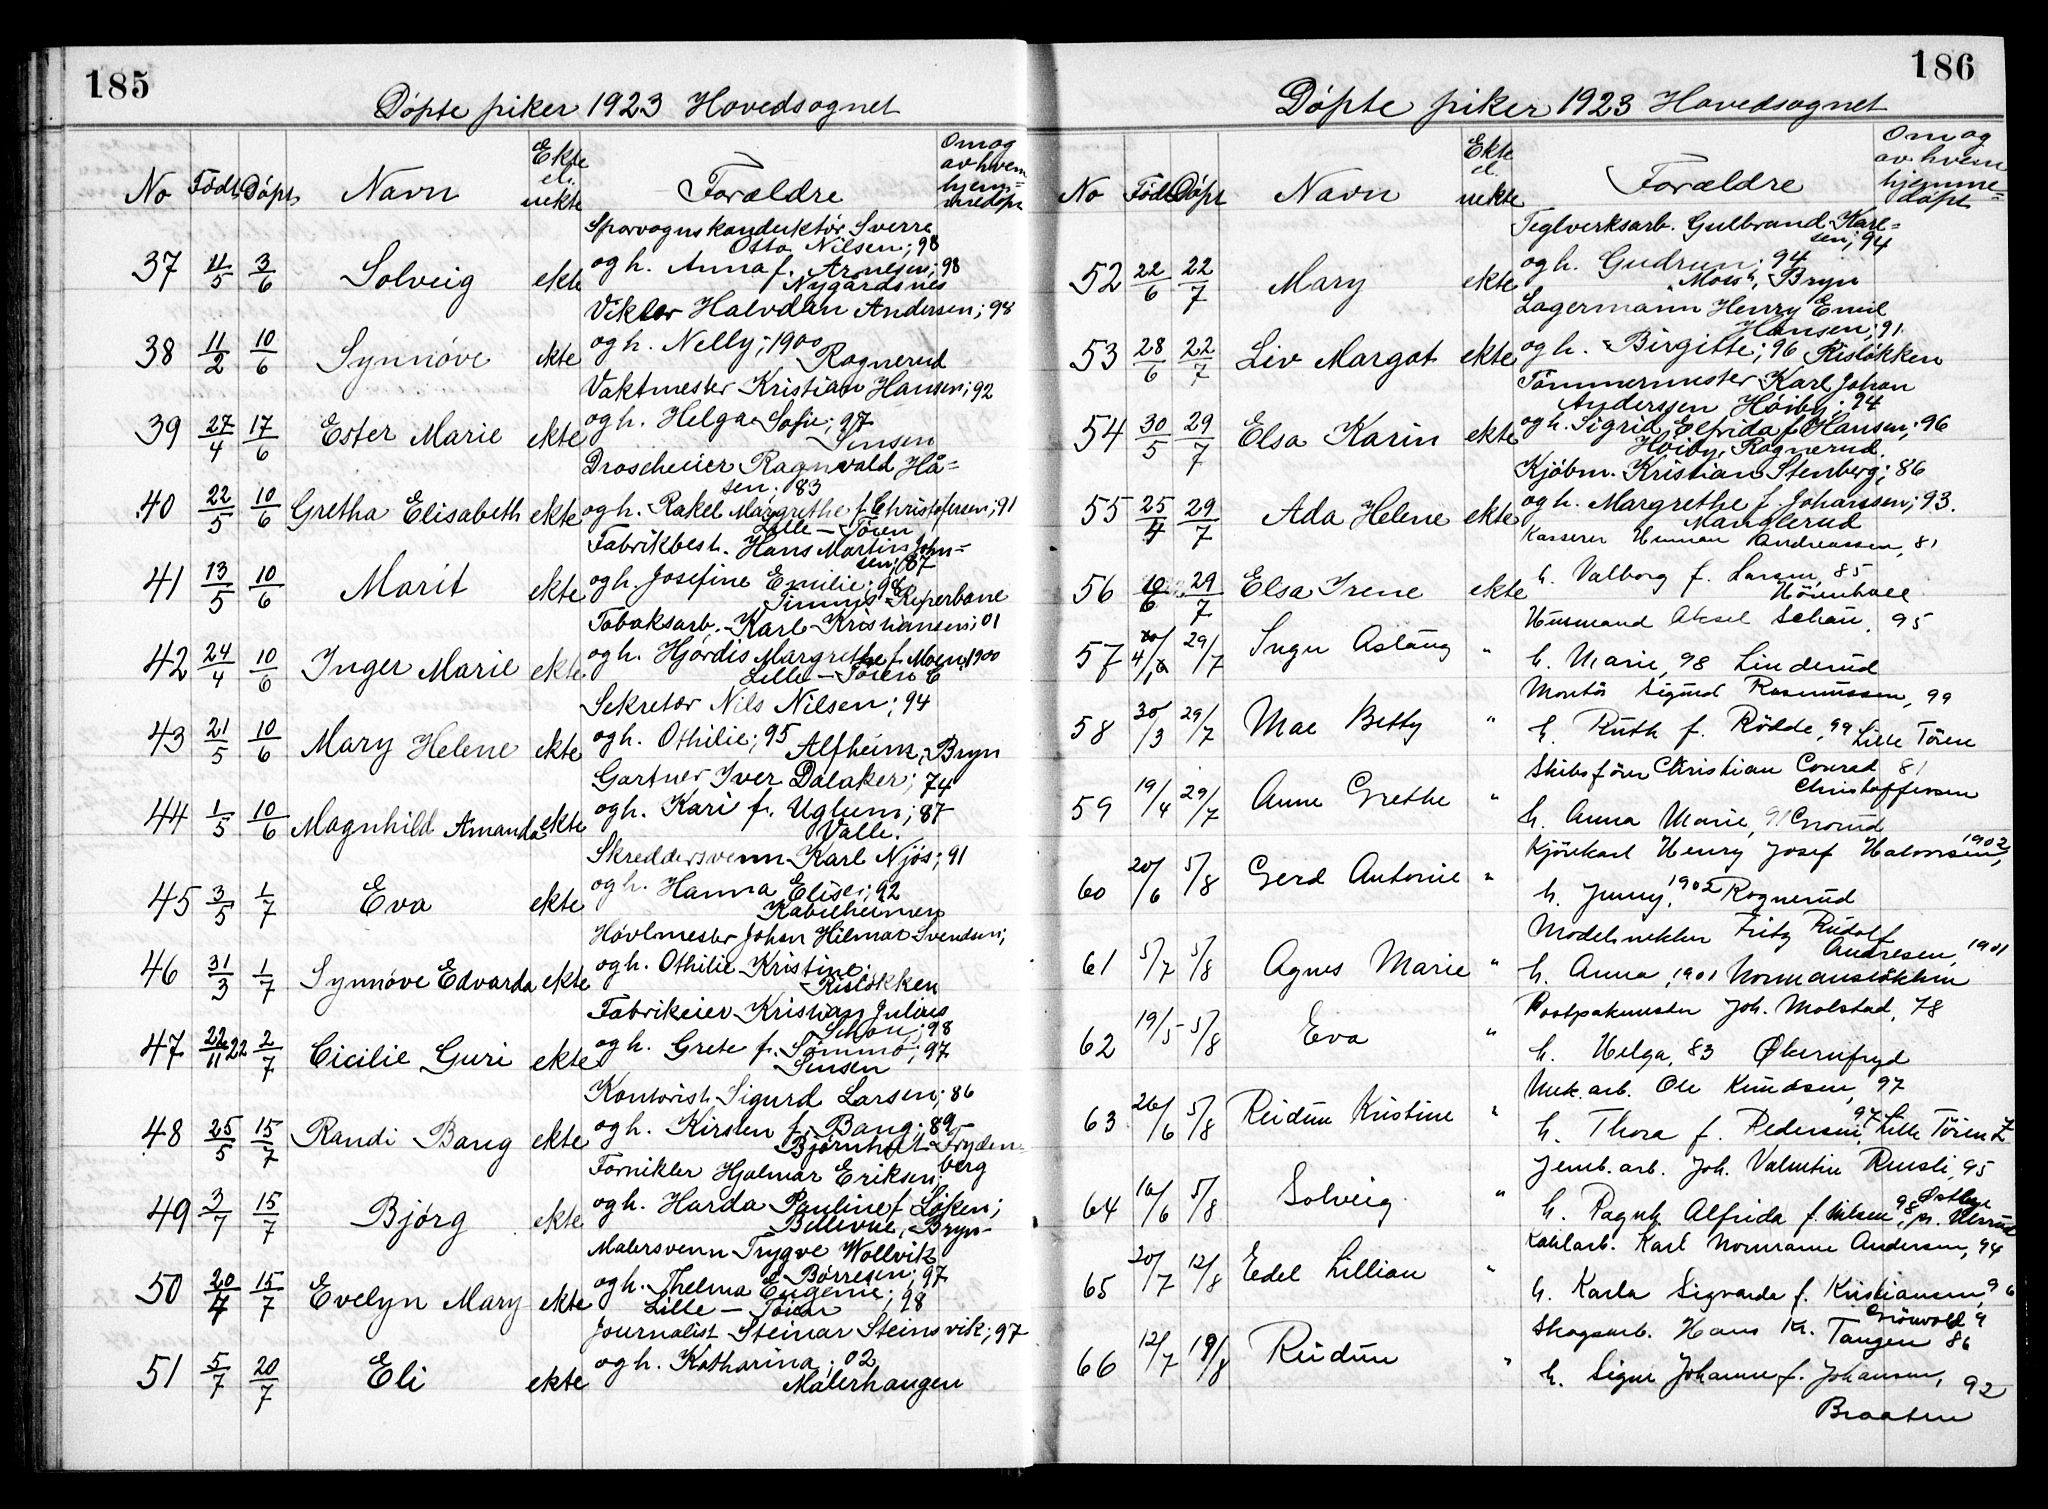 185
Döpte piker 1923 Hovedsognet
No Födt Döpt Navn Ekte el. uekte Foræeldre Om og av hvem hjem=medöpt
Sporvognskonduktör Sverre
Otto Nilsen; 98
37 11/5 3/6 Solveig ekte og h. Anna f. Arnesen; 98
Nygårdsnes
Viktor Halvdan Andersen; 98
38 11/2 10/6 Synnöve ekte og h. Nelly; 1900
Rognerud
Vaktmester Kristian Hansen; 92
39 27/4 17/6 Ester Marie ekte og h. Helga Sofie; 97
Sinsen
Droscheeier Ragnvald Hå=
sen; 83
40 22/5 10/6 Gretha Elisabeth ekte og h. Rakel Margrethe f. Christofersen; 91
Lille-Töien
Fabrikbest. Hans Martin John=
sen; 87
41 13/5 10/6 Marit ekte og h. Josefine Emilie; 98
Reperbane
Tobaksarb. Karl Kristiansen; 01
42 24/4 10/6 Inger Marie ekte og h. Hjördis Margrethe f. Moen; 1900
Lille-Töien E
Sekretær Nils Nilsen; 94
43 21/5 10/6 Mary Helene ekte og h. Othilie; 95
Alfheim, Bryn
Gartner Iver Dalaker; 74
44 1/5 10/6 Magnhild Amanda ekte og h. Kari f. Uglum; 87
Valle.
Skreddersvenn Karl Njös; 91
45 3/5 1/7 Eva ekte og h. Hanna Elise; 92
Kabelheimen
Hövlmester Johan Hilmar Svendsen;
46 31/3 1/7 Synnöve Edvarda ekte og h. Othilie Kristine;
Rislökken
Fabrikeier Kristian Julius
Schou; 98
47 22/11 22 2/7 Cicilie Guri ekte og h. Grete f. Sömme; 97
Sinsen
Kontorist Sigurd Larsen; 86
48 25/5 15/7 Randi Bang ekte og h. Kirsten f. Bang; 89
Björnholt Fryden=
berg
Fornikler Hjalmar Eriksen;
49 3/7 15/7 Bjørg ekte og h. Harda Pauline f. Löken;
Bellevue, Bryn
Malersvenn Trygve Wollvik
Börresen; 97
50 20/4 15/7 Evelyn Mary ekte og h. Thelma Eugenie; 98
Lille-Töien
Journalist Steinar Steinsvik; 97
51 5/7 20/7 Eli ekte og h. Katharina; 02
Målerhaugen
186
Döpte piker 1923 Hovedsognet
No Födt Döpt Navn Ekte el. uekte Forældre Om og av hvem hjemme=döpt
Teglverksarb. Gulbrand Karl=
sen; 94
52 22/6 22/7 Mary ekte og h. Gudrun; 94
"Mose", Bryn
Lagermann Henry Emil
Hansen; 91
53 28/6 22/7 Liv Margot ekte og h. Birgitte; 96 Rislökken
Tömmermester Karl Johan
Anderssen Höiby; 94
54 30/5 29/7 Elsa Karin ekte og h. Sigrid Elfrida f. Hansen; 96
Höiby, Rognerud.
Kjöbm. Kristian Stenberg; 86
55 25/4 29/7 Ada Helene ekte og h. Margrethe f. Johanssen; 93.
Manglerud
Kasserer Herman Andreassen, 81
56 10/6 29/7 Elsa Irene ekte h. Valborg f. Larsen, 85
Husmand Aksel Schau, 95
57 29/7 Inger Aslaug " h. Marie, 98 Linderud
Montör Sigurd Rasmussen, 99
58 30/3 29/7 Mae Betty " h. Ruth f. Rödde, 99 Lille Töien
Skibsförer Christian Conrad 81
Christoffersen
59 19/4 29/7 Anne Grethe " h. Anna Marie, 91 Grorud
Kjörekarl Henry Josef Halvorsen, 1902
60 20/6 5/8 Gerd Antonie " h. Jenny, 1902 Rognerud
Modelsnekker Fritz Rudolf
Andresen, 1901
61 5/7 5/8 Agnes Marie " h. Anna, 1901 Normanslökken
Postpakmester Joh. Molstad, 78
62 19/5 5/8 Eva " h. Helga, 83 Økernfryd
Mek. arb. Ole Knudsen, 97
63 26/6 5/8 Reidun Kristine " h. Thora f. Pedersen, 97 Lille Töien Z
Jernb. arb. Joh. Valentin Rensli, 95
64 16/6 5/8 Solveig " h. Ragnh. Alfrida f. Nilsen, 98, Østbye
Kablarb. Karl Normann Andersen, 94
65 20/7 12/8 Edel Lillian " h. Karla Sigvarda f. Kristiansen, 96
Grönvold 4
Skogsarb. Hans Kr. Tangen 86
66 12/7 19/8 Reidun " h. Signe Johanne f. Johansen, 92
Braaten